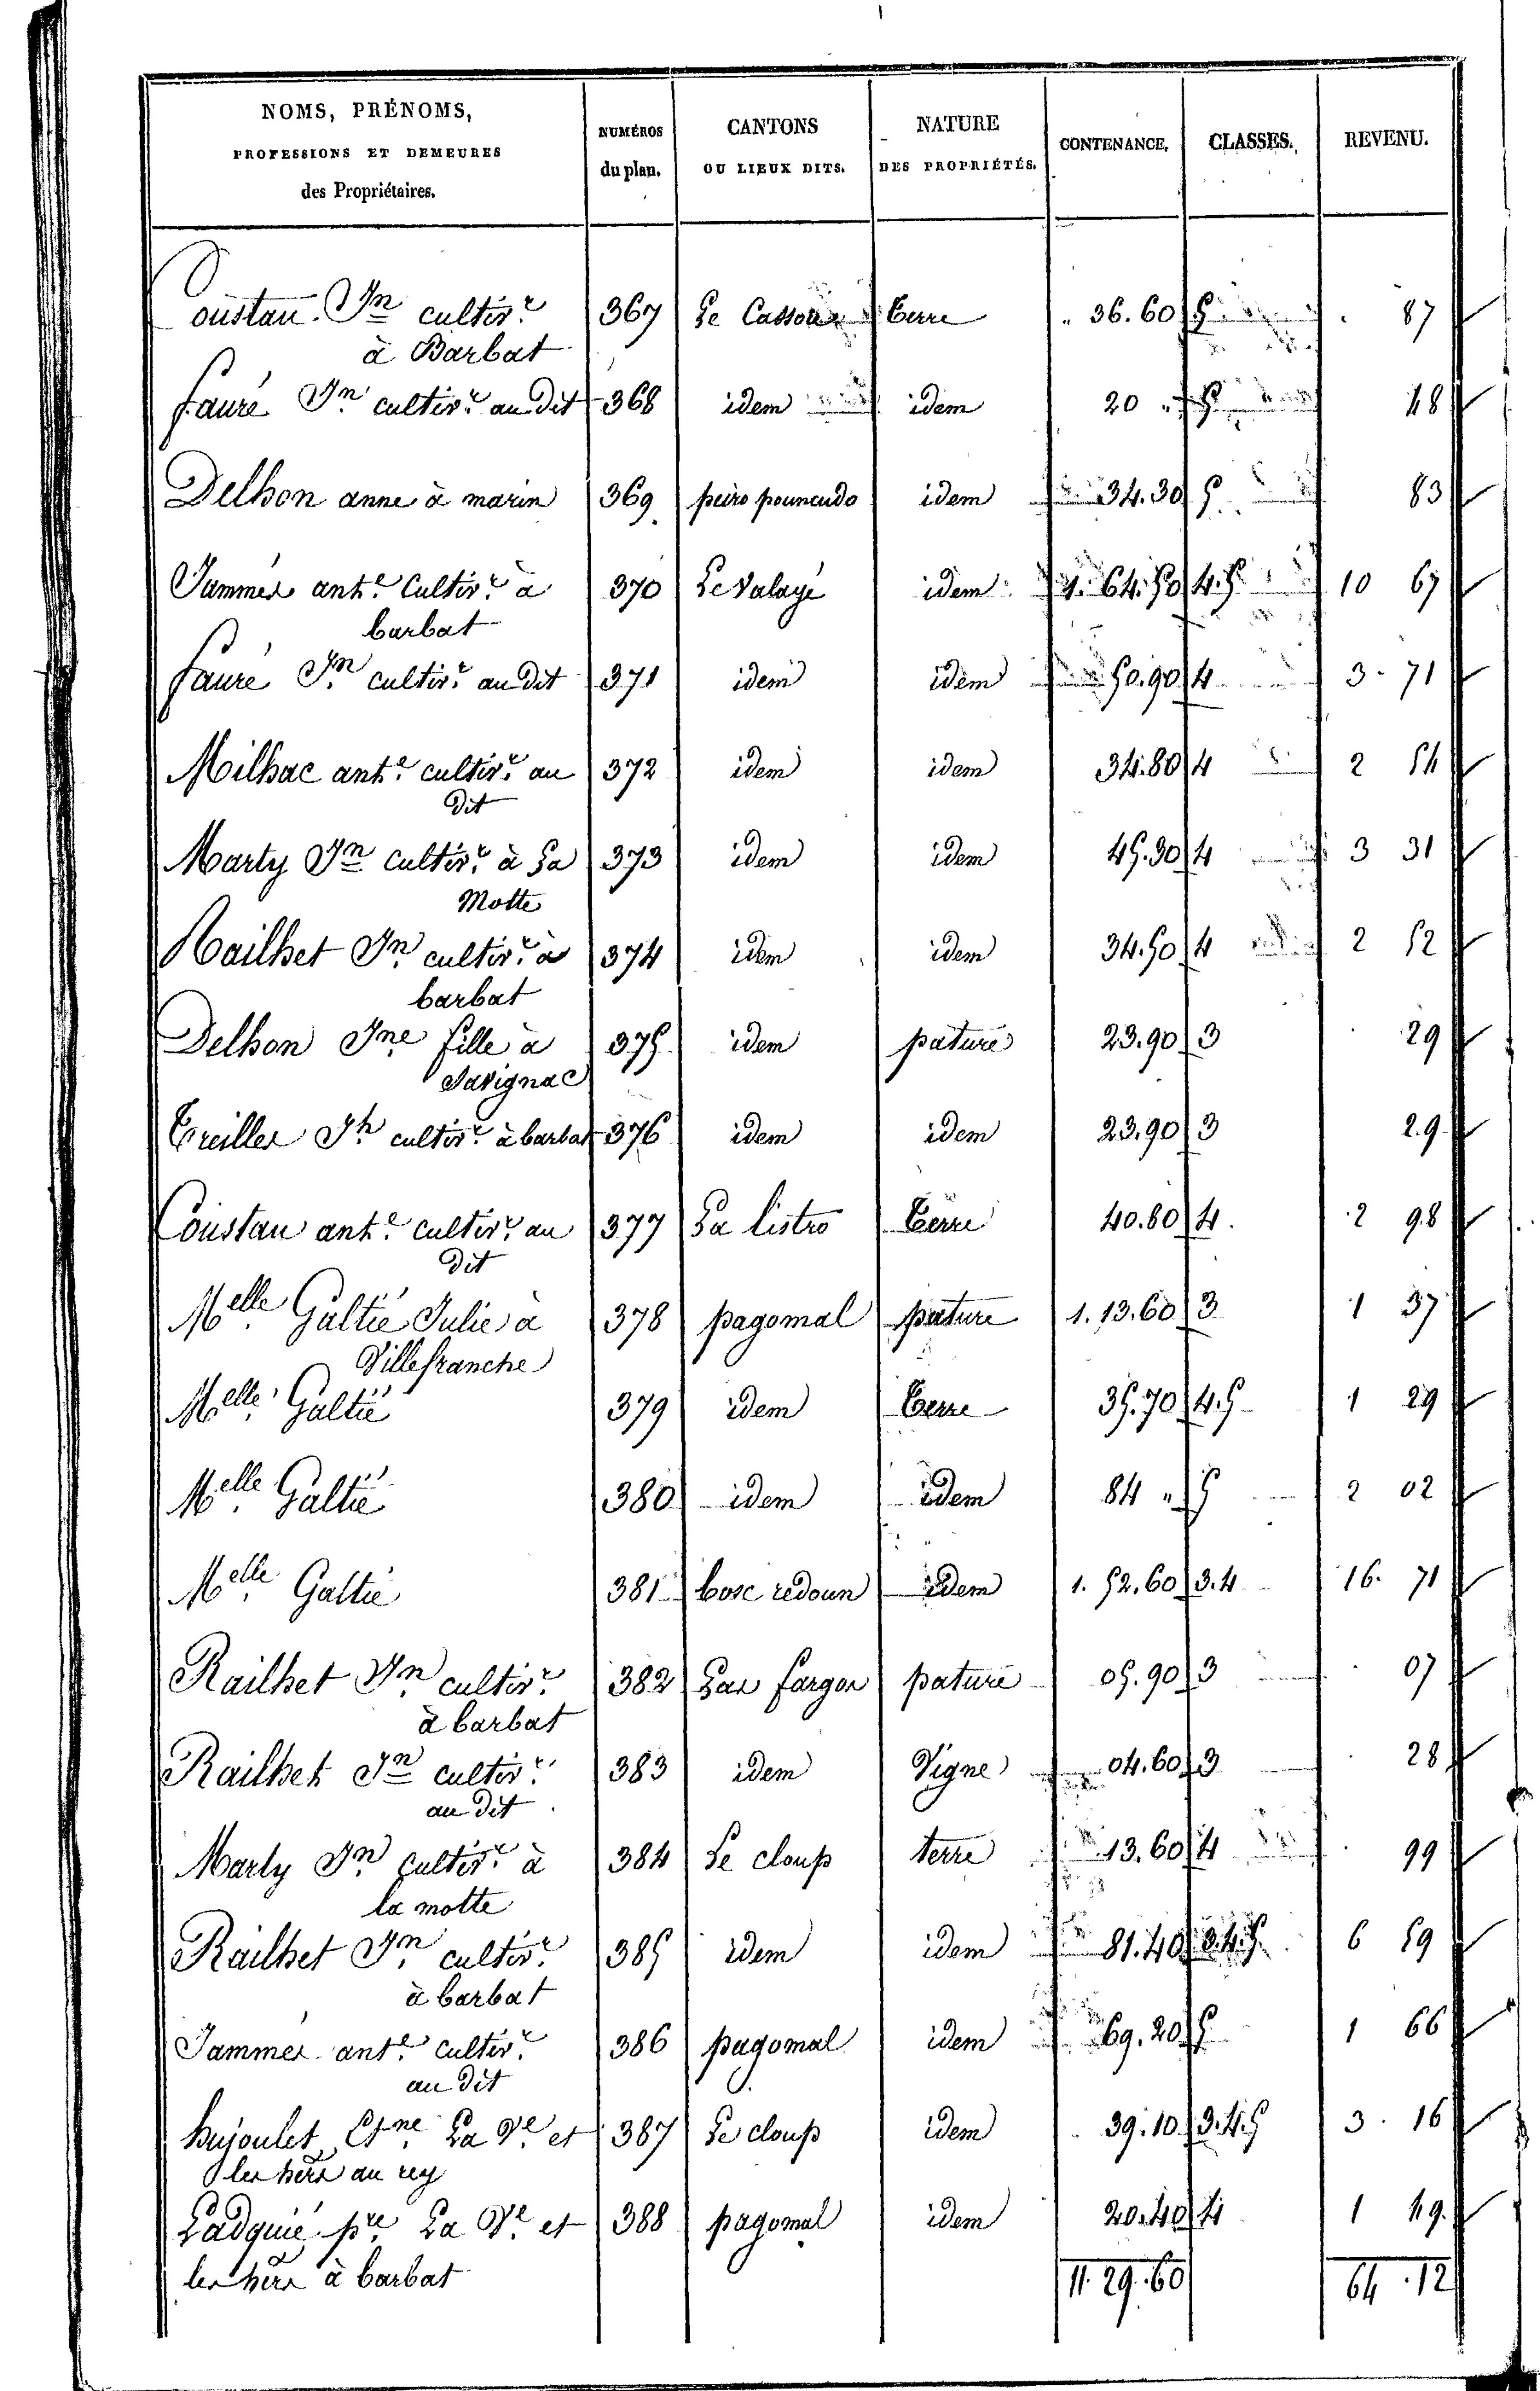 NOMS, PRÉNOMS, PROFESSIONS ET DEMEURES des Propriétaires. NUMÉROS du plan. CANTONS OU LIEUX DITS. NATURE DES PROPRIÉTÉS. CONTENANCE. CLASSES. REVENU.
Coustau Jn cultivr 367 Le Cassou Terre " 36.60 5 87
à Barbat
fauré Jn cultivr au dit 368 idem idem 20 " 5 48
Delhon anne à marin 369 peiro pouncudo idem 34.30 5 83
Jammes ante cultivr à 370 Le Valayé idem 1. 64.50 4.5 10 67
barbat
fauré Jn cultivr au dit 371 idem idem 50.90 4 3 71
Milhac ante cultivr au 372 idem idem 34.80 4 2 54
dit
Marty Jn cultivr à La 373 idem idem 45.30 4 3 31
Motte
Railhet Jn cultivr à 374 idem idem 34.50 4 2 52
barbat
Delhon Jne fille à 375 idem pature 23.90 3 29
Savignac
Treilles Jh cultivr à barbat 376 idem idem 23.90 3 29
Coustau ante cultivr au 377 La listro Terre 40.80 4. 2 98
dit
Melle Galtié Julie à 378 pagomal pature 1. 13.60 3 1 37
Villefranche
Melle Galtié 379 idem Terre 35.70 4.5 1 29
Melle Galtié 380 idem idem 84 " 5 2 02
Melle Galtié 381 bosc redoun idem 1. 52.60 3.4 16. 71
Railhet Jn cultivr 382 Las fargos pature 05.90 3 07
à barbat
Railhet Jn cultivr 383 idem Vigne 04.60 3 28
au dit
Marty Jn cultivr à 384 Le cloup terre 13.60 4 99
la motte
Railhet Jn cultivr 385 idem idem 81.40 3.4.5 6 59
à barbat
Jammes ante cultivr 386 pagomal idem 69.20 5 1 66
au dit
hujoulet Etne La Ve et 387 Le cloup idem 39.10 3.4.5 3 16
les hers au rey
Ladquié pre La Ve et 388 pagomal idem 20.40 4 1 49
les hers à barbat 11. 29.60 64 . 12